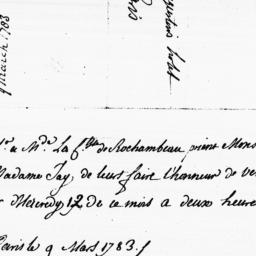 9 March 1783
Mr. & Mde. La Ctesse de Rochambeau prient Mons
Madame Jay, de leurs faire l'honneur de ve
Mercredy 12 de ce mois a deux heure
Paris le 9 Mars 1783.